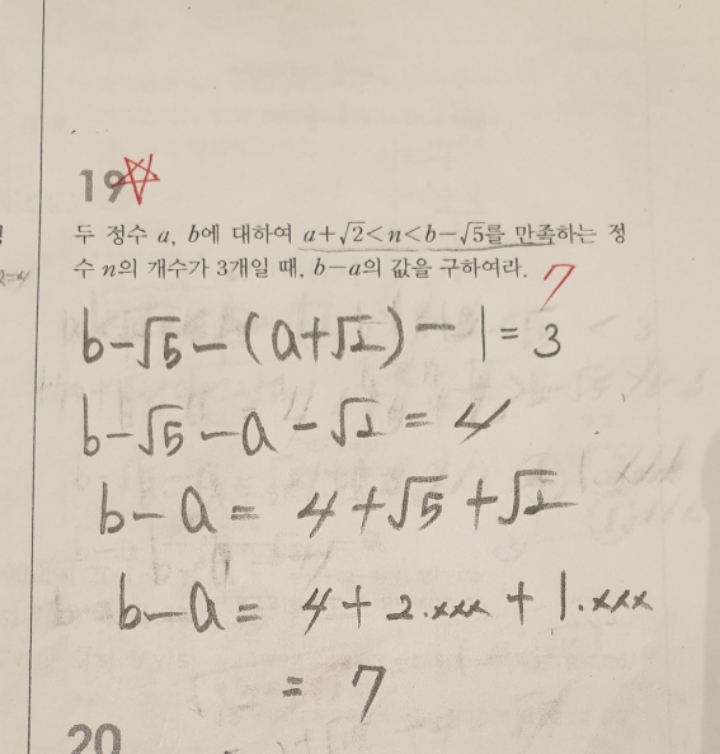 19
두 정수 a, b에 대하여 a+√2<n<b-√5를 만족하는 정
수 n의 개수가 3개일 때, b-a의 값을 구하여라. 7
b-√5-(a+√2)-1=3
b-√5-a-√2=4
b-a=4+√5+√2
b-a=4+2.xxx+1.xxx
=7
20